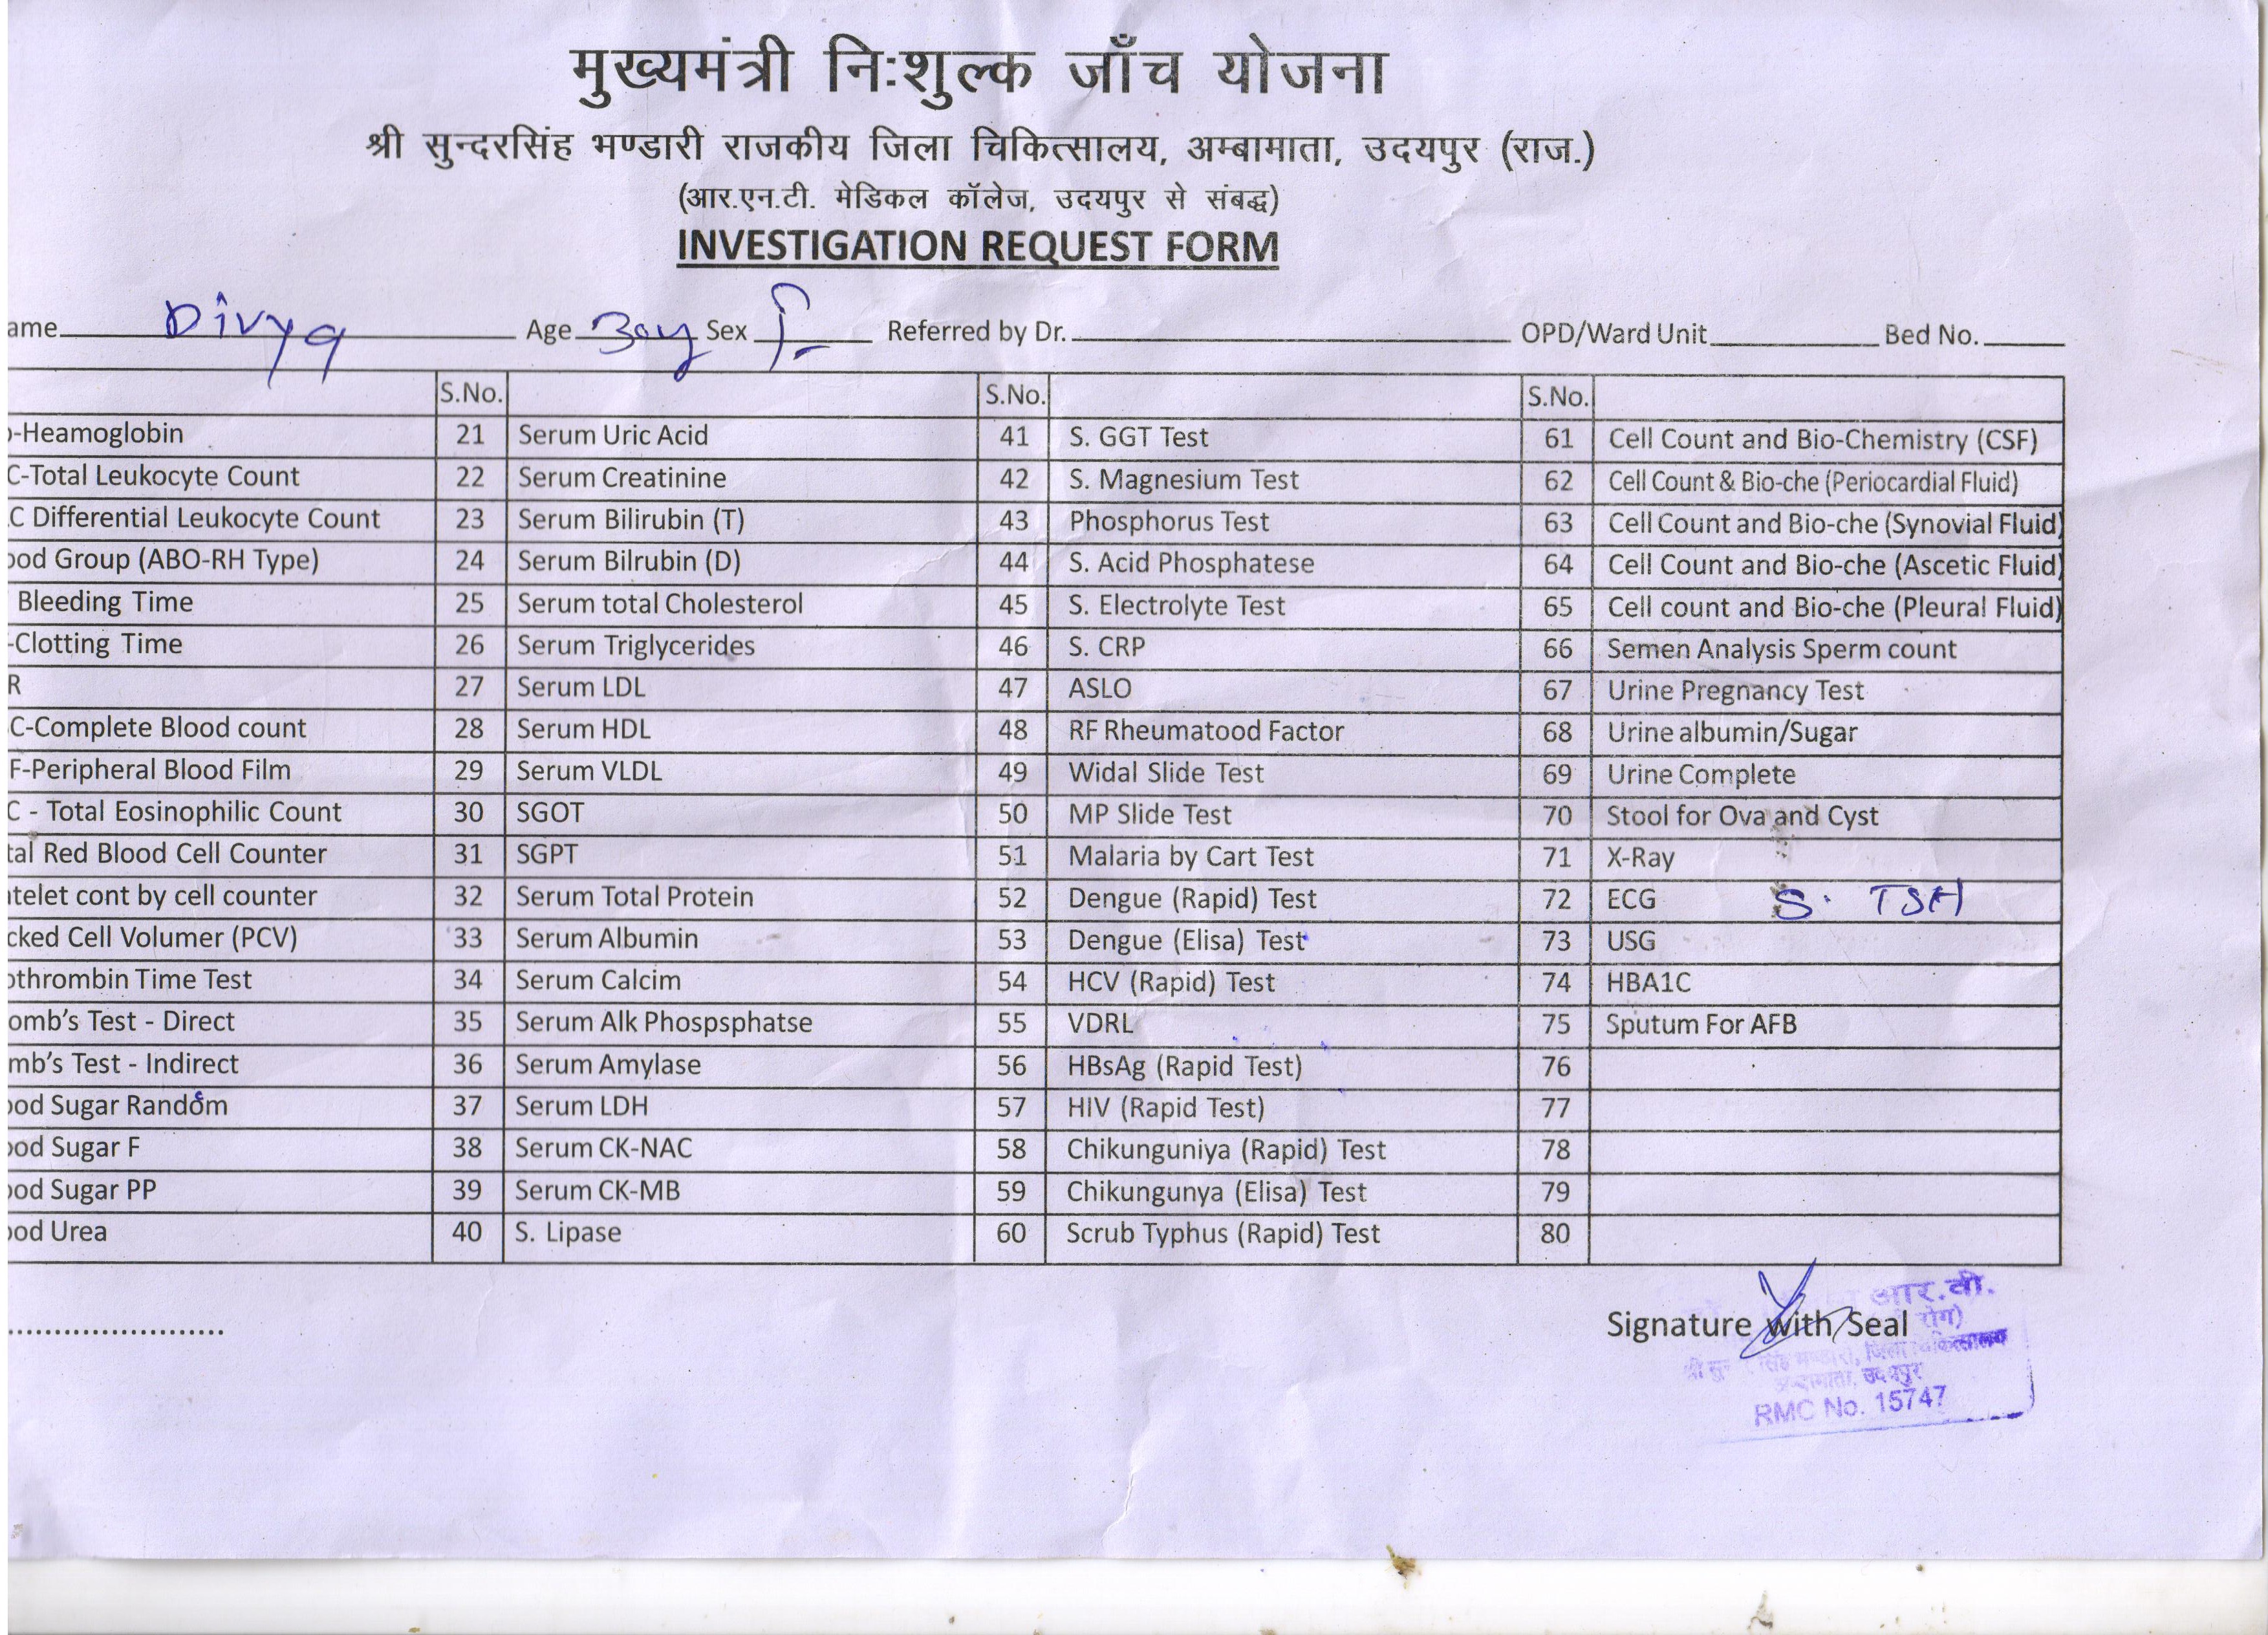 मुख्यमंत्री निःशुल्क जाँच योजना
श्री सुन्दरसिंह भण्डारी राजकीय जिला चिकित्सालय, अम्बामाता, उदयपुर (राज.)
(आर.एन.टी. मेडिकल कॉलेज, उदयपुर से संबद्ध)
INVESTIGATION REQUEST FORM
ame Divya Age 30y Sex F Referred by Dr. OPD/Ward Unit Bed No.
S.No. S.No. S.No.
-Heamoglobin 21 Serum Uric Acid 41 S. GGT Test 61 Cell Count and Bio-Chemistry (CSF)
C-Total Leukocyte Count 22 Serum Creatinine 42 S. Magnesium Test 62 Cell Count & Bio-che (Periocardial Fluid)
C Differential Leukocyte Count 23 Serum Bilirubin (T) 43 Phosphorus Test 63 Cell Count and Bio-che (Synovial Fluid)
ood Group (ABO-RH Type) 24 Serum Bilrubin (D) 44 S. Acid Phosphatese 64 Cell Count and Bio-che (Ascetic Fluid)
Bleeding Time 25 Serum total Cholesterol 45 S. Electrolyte Test 65 Cell count and Bio-che (Pleural Fluid)
-Clotting Time 26 Serum Triglycerides 46 S. CRP 66 Semen Analysis Sperm count
R 27 Serum LDL 47 ASLO 67 Urine Pregnancy Test
C-Complete Blood count 28 Serum HDL 48 RF Rheumatood Factor 68 Urine albumin/Sugar
F-Peripheral Blood Film 29 Serum VLDL 49 Widal Slide Test 69 Urine Complete
C - Total Eosinophilic Count 30 SGOT 50 MP Slide Test 70 Stool for Ova and Cyst
tal Red Blood Cell Counter 31 SGPT 51 Malaria by Cart Test 71 X-Ray
telet cont by cell counter 32 Serum Total Protein 52 Dengue (Rapid) Test 72 ECG S. TSH
cked Cell Volumer (PCV) 33 Serum Albumin 53 Dengue (Elisa) Test 73 USG
othrombin Time Test 34 Serum Calcim 54 HCV (Rapid) Test 74 HBA1C
omb's Test - Direct 35 Serum Alk Phospsphatse 55 VDRL 75 Sputum For AFB
mb's Test - Indirect 36 Serum Amylase 56 HBsAg (Rapid Test) 76
ood Sugar Random 37 Serum LDH 57 HIV (Rapid Test) 77
ood Sugar F 38 Serum CK-NAC 58 Chikunguniya (Rapid) Test 78
ood Sugar PP 39 Serum CK-MB 59 Chikungunya (Elisa) Test 79
ood Urea 40 S. Lipase 60 Scrub Typhus (Rapid) Test 80
आर.वी.
Signature with Seal
रोग)
जिला चिकित्सालय
उदयपुर
RMC No. 15747